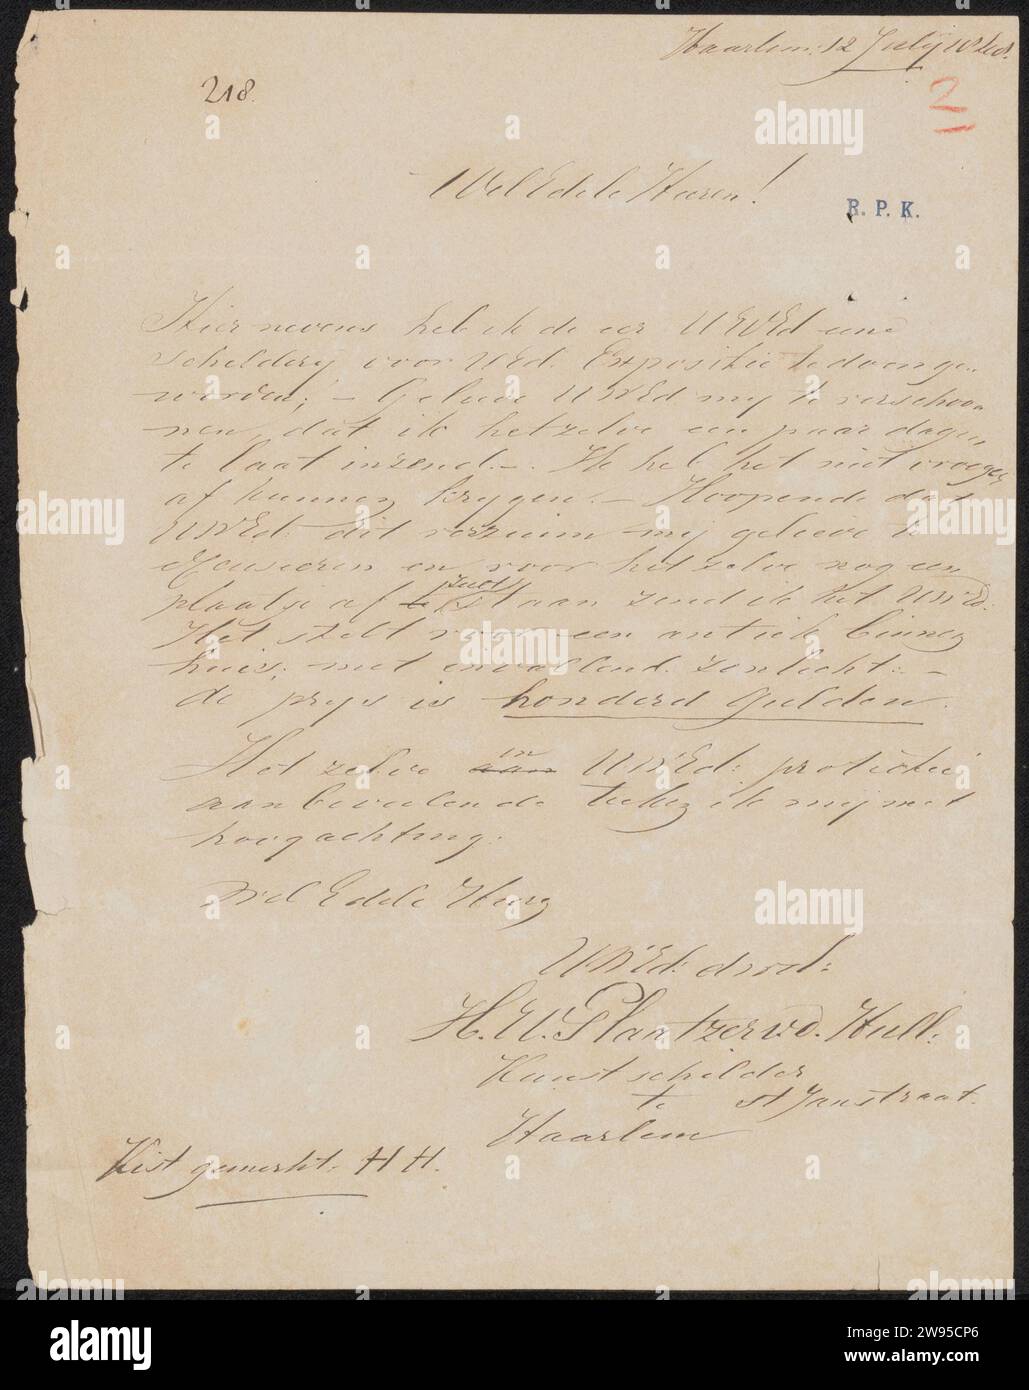 Haarlem. 12 July
218.
2
Wel Edele Heeren!
R. P. K.
Hier nevens heb ik de eer UWEd eene
schildery voor UEd. Expositie te doen
worden; – Gelieve UWEd my te verschoo
nen, dat ik hetzelve een paar dagen
te laat inzend. – Ik heb het niet vroeger
af kunnen krygen. – Hoopende dat
UWEd: dit verzuim my gelieve te
en voor hetzelve nog een
plaatsje af te staan zend ik het UWEd:
Het stelt voor een antiek binnen
huis; met invallend zonlicht: –
de prys is honderd Gulden.
Het zelve aan in UWEd: protectie
aanbevelende teeken ik mij met
hoogachting.
Wel Edele Heeren
UWEd: dwd:
H. W. Plaatzer v.d. Hull:
Kunstschilder
te St Janstraat.
Haarlem
Kist gemerkt: H H.
alamy
Image ID: 2W95CP6
www.alamy.com